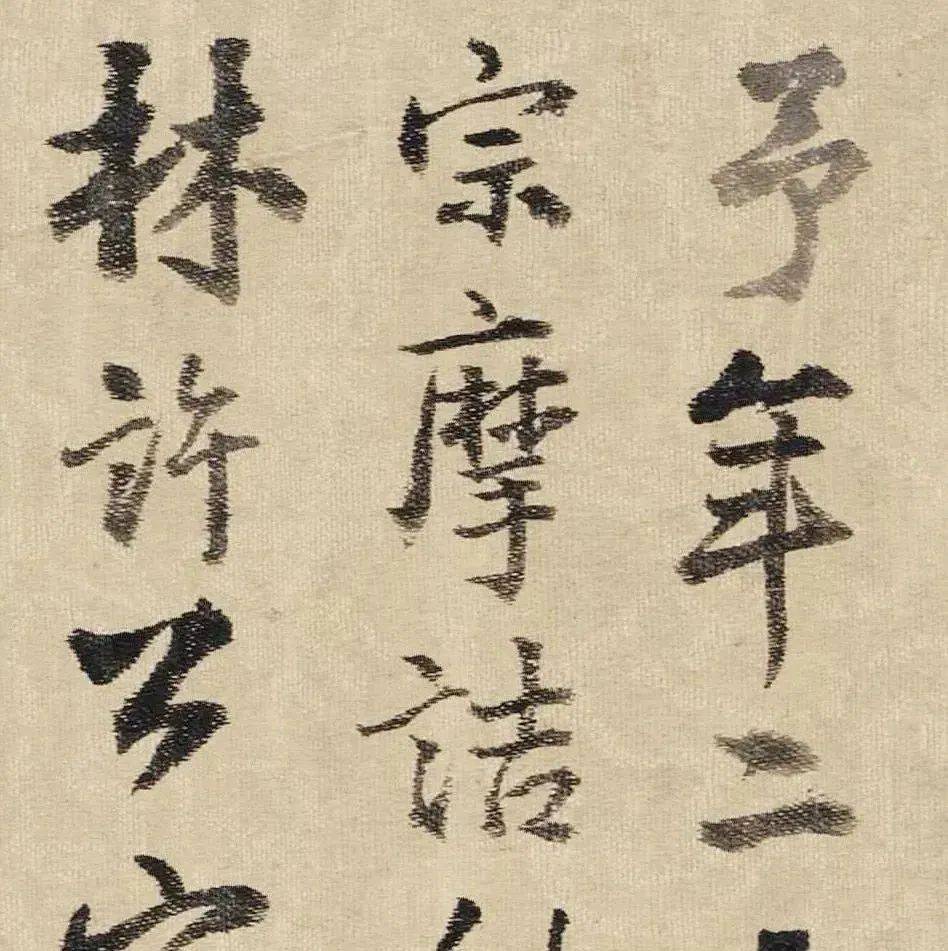 予年二
宗摩詰
林許公